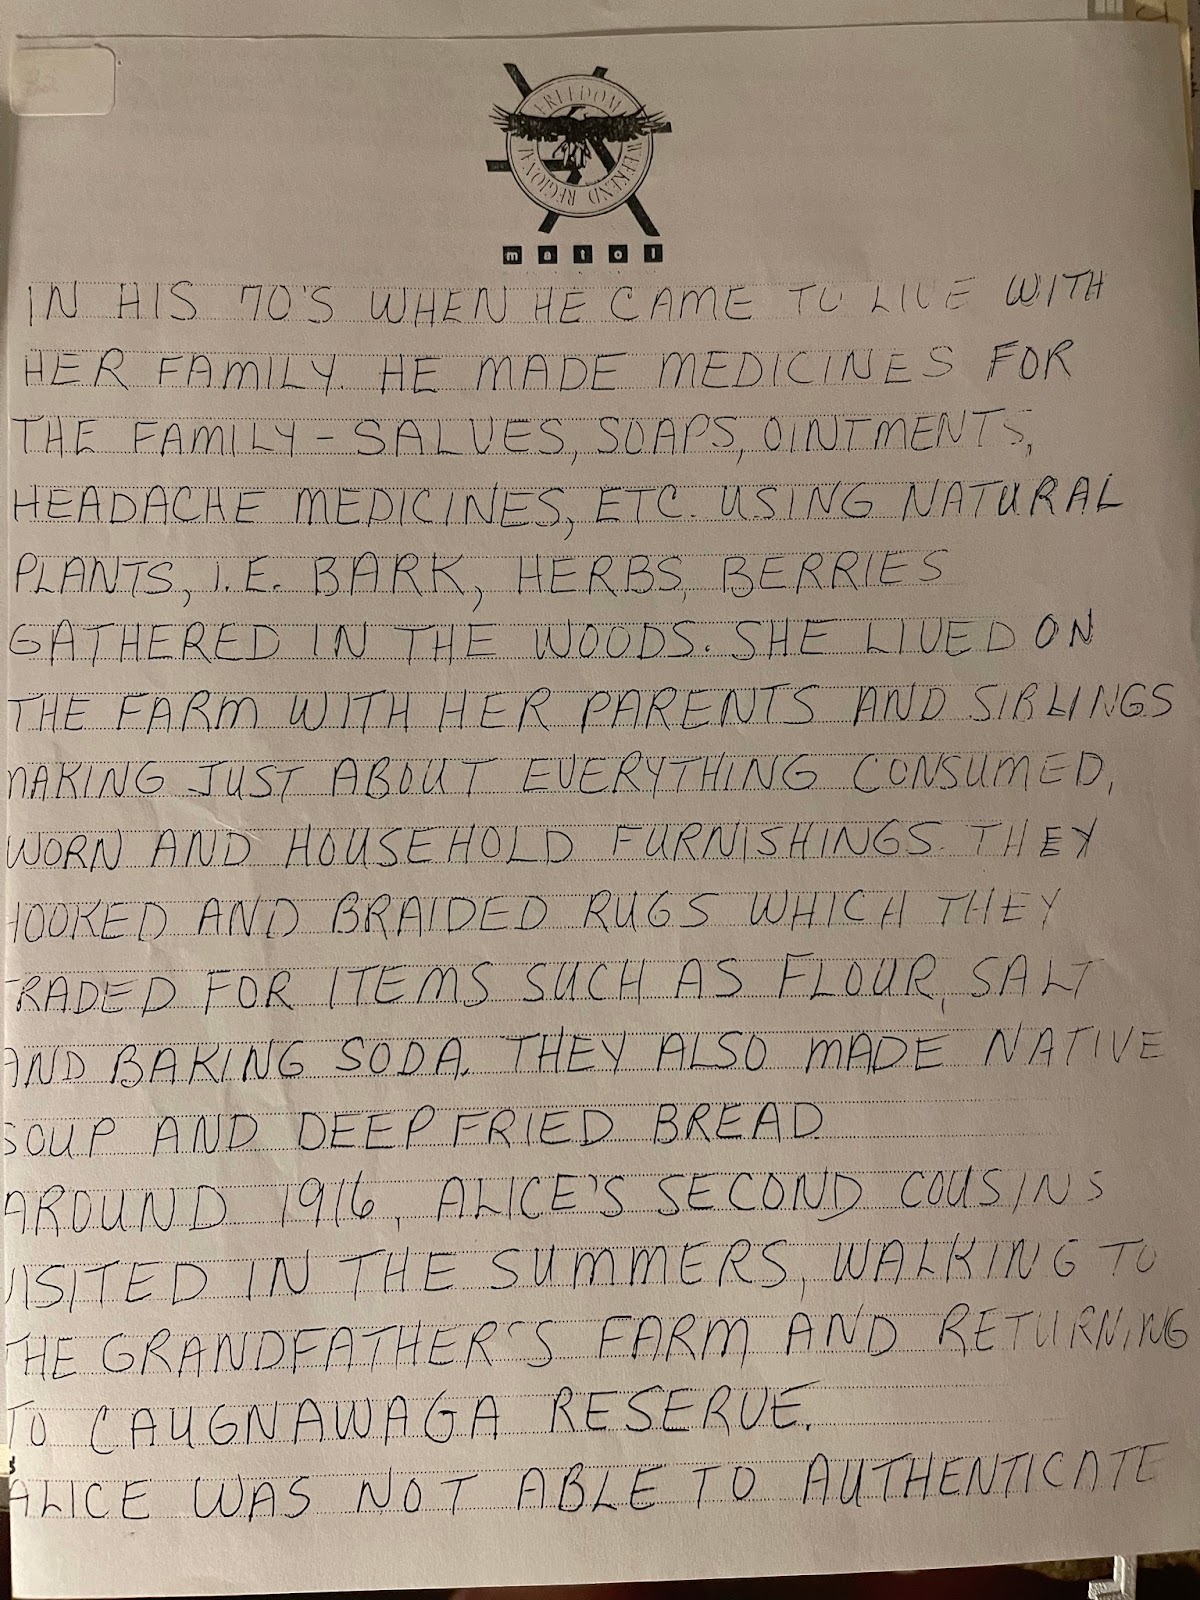 FREEDOM
WEEKEND REGIONAL
matol
IN HIS 70'S WHEN HE CAME TO LIVE WITH
HER FAMILY. HE MADE MEDICINES FOR
THE FAMILY - SALVES, SOAPS, OINTMENTS,
HEADACHE MEDICINES, ETC. USING NATURAL
PLANTS, I.E. BARK, HERBS, BERRIES
GATHERED IN THE WOODS. SHE LIVED ON
THE FARM WITH HER PARENTS AND SIBLINGS
MAKING JUST ABOUT EVERYTHING CONSUMED,
WORN AND HOUSEHOLD FURNISHINGS. THEY
HOOKED AND BRAIDED RUGS WHICH THEY
TRADED FOR ITEMS SUCH AS FLOUR, SALT
AND BAKING SODA. THEY ALSO MADE NATIVE
SOUP AND DEEP FRIED BREAD.
AROUND 1916, ALICE'S SECOND COUSINS
VISITED IN THE SUMMERS, WALKING TO
THE GRANDFATHER'S FARM AND RETURNING
TO CAUGNAWAGA RESERVE.
ALICE WAS NOT ABLE TO AUTHENTICATE